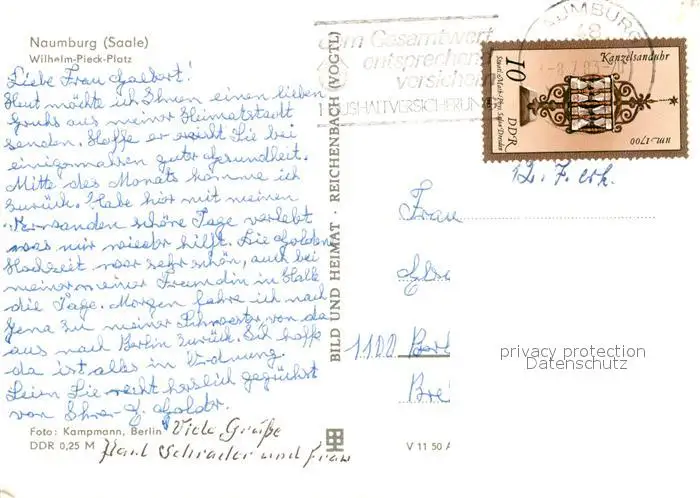 Naumburg (Saale)
Wilhelm-Pieck-Platz
Liebe Frau
Heut möchte ich Ihnen einen lieben
Gruß aus meiner Heimatstadt
senden. Hoffe er reicht Sie bei
einigermaßen guter Gesundheit.
Mitte des Monats komme ich
zurück. Habe hier mit meinen
Verwandten schöne Tage verlebt
was mir wieder hilft. Die Goldene
Hochzeit war sehr schön, auch bei
meiner Freundin in Halle
die Tage. Morgen fahre ich nach
Jena zu meiner Schwester von da
aus nach Berlin zurück. Ich hoffe
da ist alles in Ordnung.
Seien Sie recht herzlich gegrüßt
von Ihrer
Foto: Kampmann, Berlin
DDR 0,25 M
Viele Grüße
Paul Schrader und Frau
BILD UND HEIMAT · REICHENBACH (VOGTL)
V 11 50 A
dem Gesamtwert
entsprechend
versichern
HAUSHALTVERSICHERUNG
NAUMBURG
48
Kanzelsanduhr
10
DDR
Staatl. Math.-Phys. Salon Dresden
um 1700
12. 7. erh.
Frau
1100 Berl
privacy protection
Datenschutz